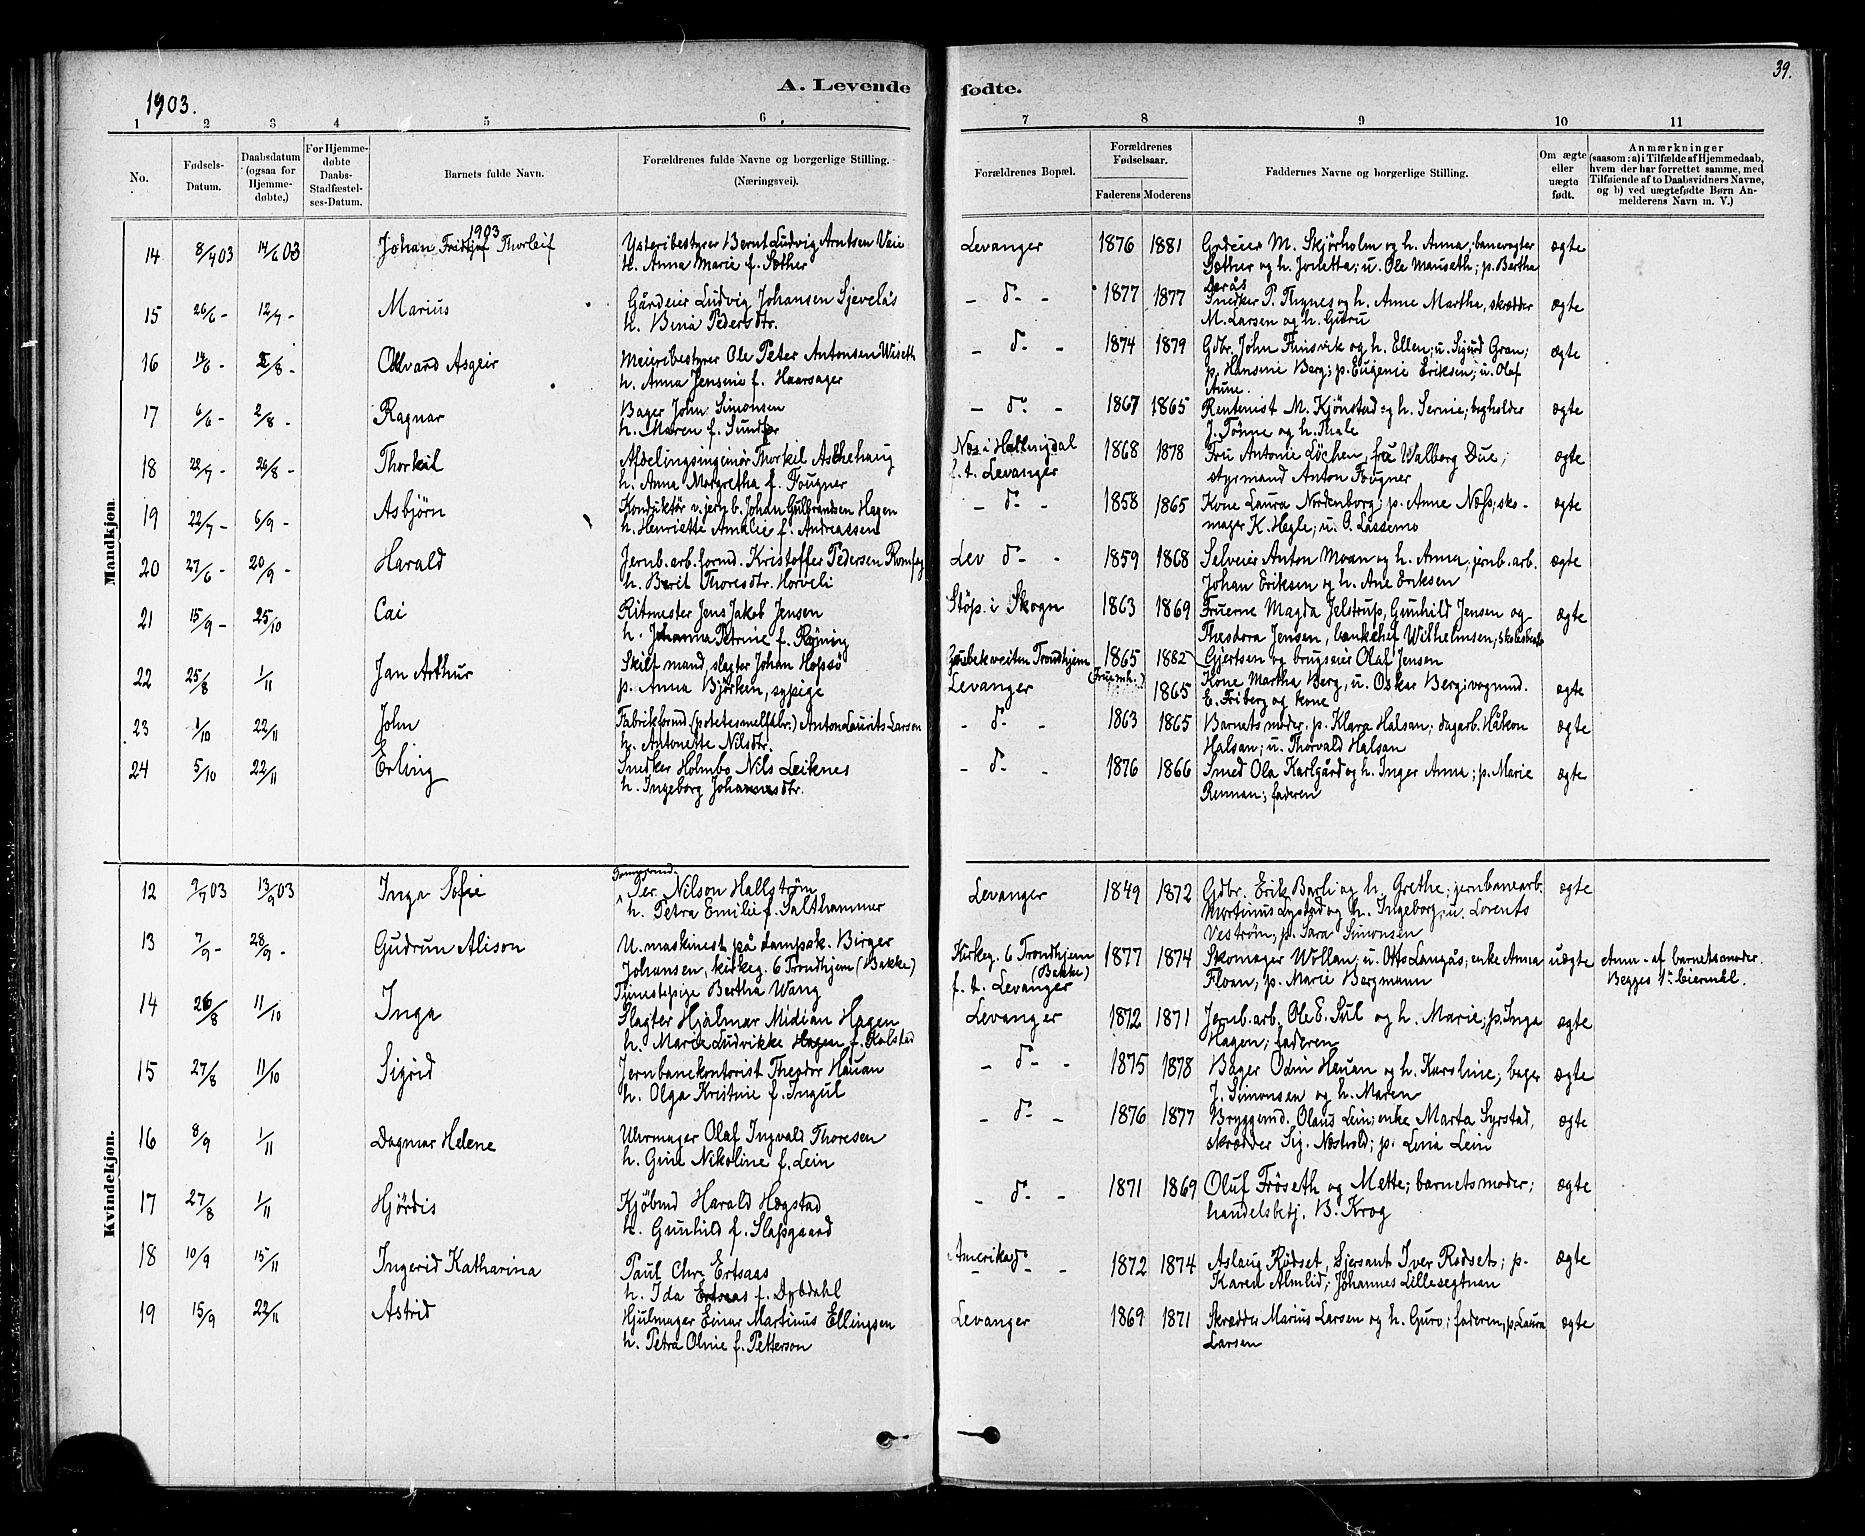 39.
1903.
A. Levende fødte.
1 2 3 4 5 6 7 8 9 10 11
No.
Fødsels-Datum.
Daabsdatum (ogsaa for Hjemme-døbte,)
For Hjemme-døbte Daabs-Stadfæstel-ses-Datum.
Barnets fulde Navn.
Forældrenes fulde Navne og borgerlige Stilling. (Næringsvei).
Forældrenes Bopæl.
Forældrenes Fødselsaar.
Faderens Moderens
Faddernes Navne og borgerlige Stilling.
Om ægte eller uægte født.
Anmærkninger
(saasom: a) i Tilfælde af Hjemmedaab, hvem der har forrettet samme, med Tilføiende af to Daabsvidners Navne, og b) ved uægtefødte Børn An-melderens Navn m. V.)
Mandkjøn
1903
14 8/7 03 14/6 03 Johan Fridtjof Thorleif Ysteribestyrer Bernt Ludvig Arntsen Vaie Levanger 1876 1881 Grdeier M. Skjørholm og h. Anna; banevogter ægte
h. Anna Marie f. Sæther Sæther og h. Jonetta; u. Ole Mauseth; p. Bertha
Derås
15 26/6 - 12/7 - Marius Gårdeier Ludvig Johansen Sjevelås - do - 1877 1877 Snedker P. Thynes og h. Anne Martha, skrædder ægte
h. Bina Pedersdtr. M. Larsen og h. Guru
16 14/6 - 2/8 - Oddvard Asgeir Meieribestyrer Ole Peter Antonsen Wiseth - do - 1874 1879 Gdbr. John Finsvik og h. Ellen; u. Sigurd Gran; ægte
h. Anna Jensine f. Haarsager p. Hansine Berg; p. Eugenie Eriksen; u. Olaf
Aune.
17 6/6 - 2/8 - Ragnar Bager John Simonsen - do - 1867 1865 Rentenist M. Kjønstad og h. Sernie; bogholder ægte
h. Maren f. Sundfær J. Tønne og h. Thale
18 28/7 - 26/8 - Thorkil Afdelingsingeniør Thorkil Aschehaug Næs i Hallingdal 1868 1878 Fru Antonie Løchen, fru Valborg Due; ægte
h. Anna Margretha f. Fougner f. t. Levanger styrmand Anton Fougner
19 22/7 - 6/9 - Asbjørn Konduktør v. jernb. Johan Gulbrandsen Hagen - do - 1858 1865 Kone Laura Nordenborg; p. Anne Næss; sko- ægte
h. Henriette Amalie f. Andreassen mager K. Hegle; u. O. Lassemo
20 27/6 - 20/9 - Harald Jernb. arb. formd. Kristoffer Pedersen Lev do - 1859 1868 Selveier Anton Moan og h. Anna; jernb. arb. ægte
h. Berit Thoresdtr. Horveli Johan Eriksen og h. Ane Eriksen
21 15/9 - 25/10 Cai Ritmester Jens Jakob Jensen Støp. i Skogn 1863 1869 Fruerne Magda Jelstrup, Gunhild Jensen og ægte
h. Johanna Petrine f. Røning Theodora Jensen, bankchef Wilhelmsen, skolebest.
Gjertsen og brugseier Olaf Jensen
22 25/8 1/11 Jan Arthur Skilt mand, slagter Johan Hopsø Trondhjem (Fruemh.) 1865 1882
p. Anna Bjørken, sypige Levanger 1865 Kone Martha Berg, u. Oskar Berg; vognmd. ægte
E. Friberg og kone
23 1/10 22/11 John Fabrikformd. (potetesmelfabr.) Anton Laurits Larsen - do - 1863 1865 Barnets moder, p. Klara Halsan; dagarb. Håkon ægte
h. Antonette Nilsdtr. Halsan; u. Thorvald Halsan
24 5/10 22/11 Erling Snedker Holmbo Nils Leiknes - do - 1876 1866 Smed Ola Karlgård og h. Inger Anna; p. Marie ægte
h. Ingeborg Johannesdtr. Rennan; faderen
Kvindekjøn.
12 9/7 03 13/9 03 Inga Sofie Per. Nilson Hallstrøm Levanger 1849 1872 Gdbr. Erik Borli og h. Grethe; jernbanearb. ægte
h. Petra Emilie f. Salthammer Martinus Lystad og h. Ingeborg; u. Lorents
Vestrøm, p. Sara Simonsen
13 7/9 - 28/9 - Gudrun Alison U. maskinest på dampsk. Birger Kirkeg. 6 Trondhjem 1877 1874 Skomager Wollan; u. Otto Langås; enke Anna uægte Anm - af barnets moder.
Johansen, kirkeg. 6 Trondhjem (Bakke) (Bakke) Floan; p. Marie Bergmann Begges 1ste leiermål.
Tjenestepige Bertha Wang f. t. Levanger
14 26/8 11/10 Inga Slagter Hjalmar Midian Hagen Levanger 1872 1871 Jernb. arb. Ole E. Sul og h. Marie; p. Inga ægte
h. Marie Ludvikke Hagen f. Kolstad Hagen; faderen
15 27/8 11/10 Sigrid Jernbanekontorist Theodor Hauan - do - 1875 1878 Bager Odin Hauan og h. Karoline; bager ægte
h. Olga Kristine f. Ingul J. Simonsen og h. Maren
16 8/9 1/11 Dagmar Helene Uhrmager Olaf Ingvald Thoresen - do - 1876 1877 Bryggemd. Olaus Lein; enke Marta Syrstad, ægte
h. Gine Nikoline f. Lein skrædder Sig. Nostvold; p. Lina Lein
17 27/8 1/11 Hjørdis Kjøbmd Harald Hægstad - do - 1871 1869 Oluf Frøseth og Mette; barnets moder; ægte
h. Gunhild f. Slapgaard handelsbetj. B. Krog
18 10/9 15/11 Ingerid Katharina Paul Chr. Ertsaas Amerika do - 1872 1874 Aslaug Rødset, Sjersant Iver Rødset; p. ægte
h. Ida Ertsaas f. Dybdahl Karen Almlid; Johannes Lillesegtnan
19 15/9 22/11 Astrid Hjulmager Einar Martinus Ellingsen Levanger 1869 1871 Skrædder Marius Larsen og h. Guro; faderen, p. Laura ægte
h. Petra Oline f. Petterson Larsen